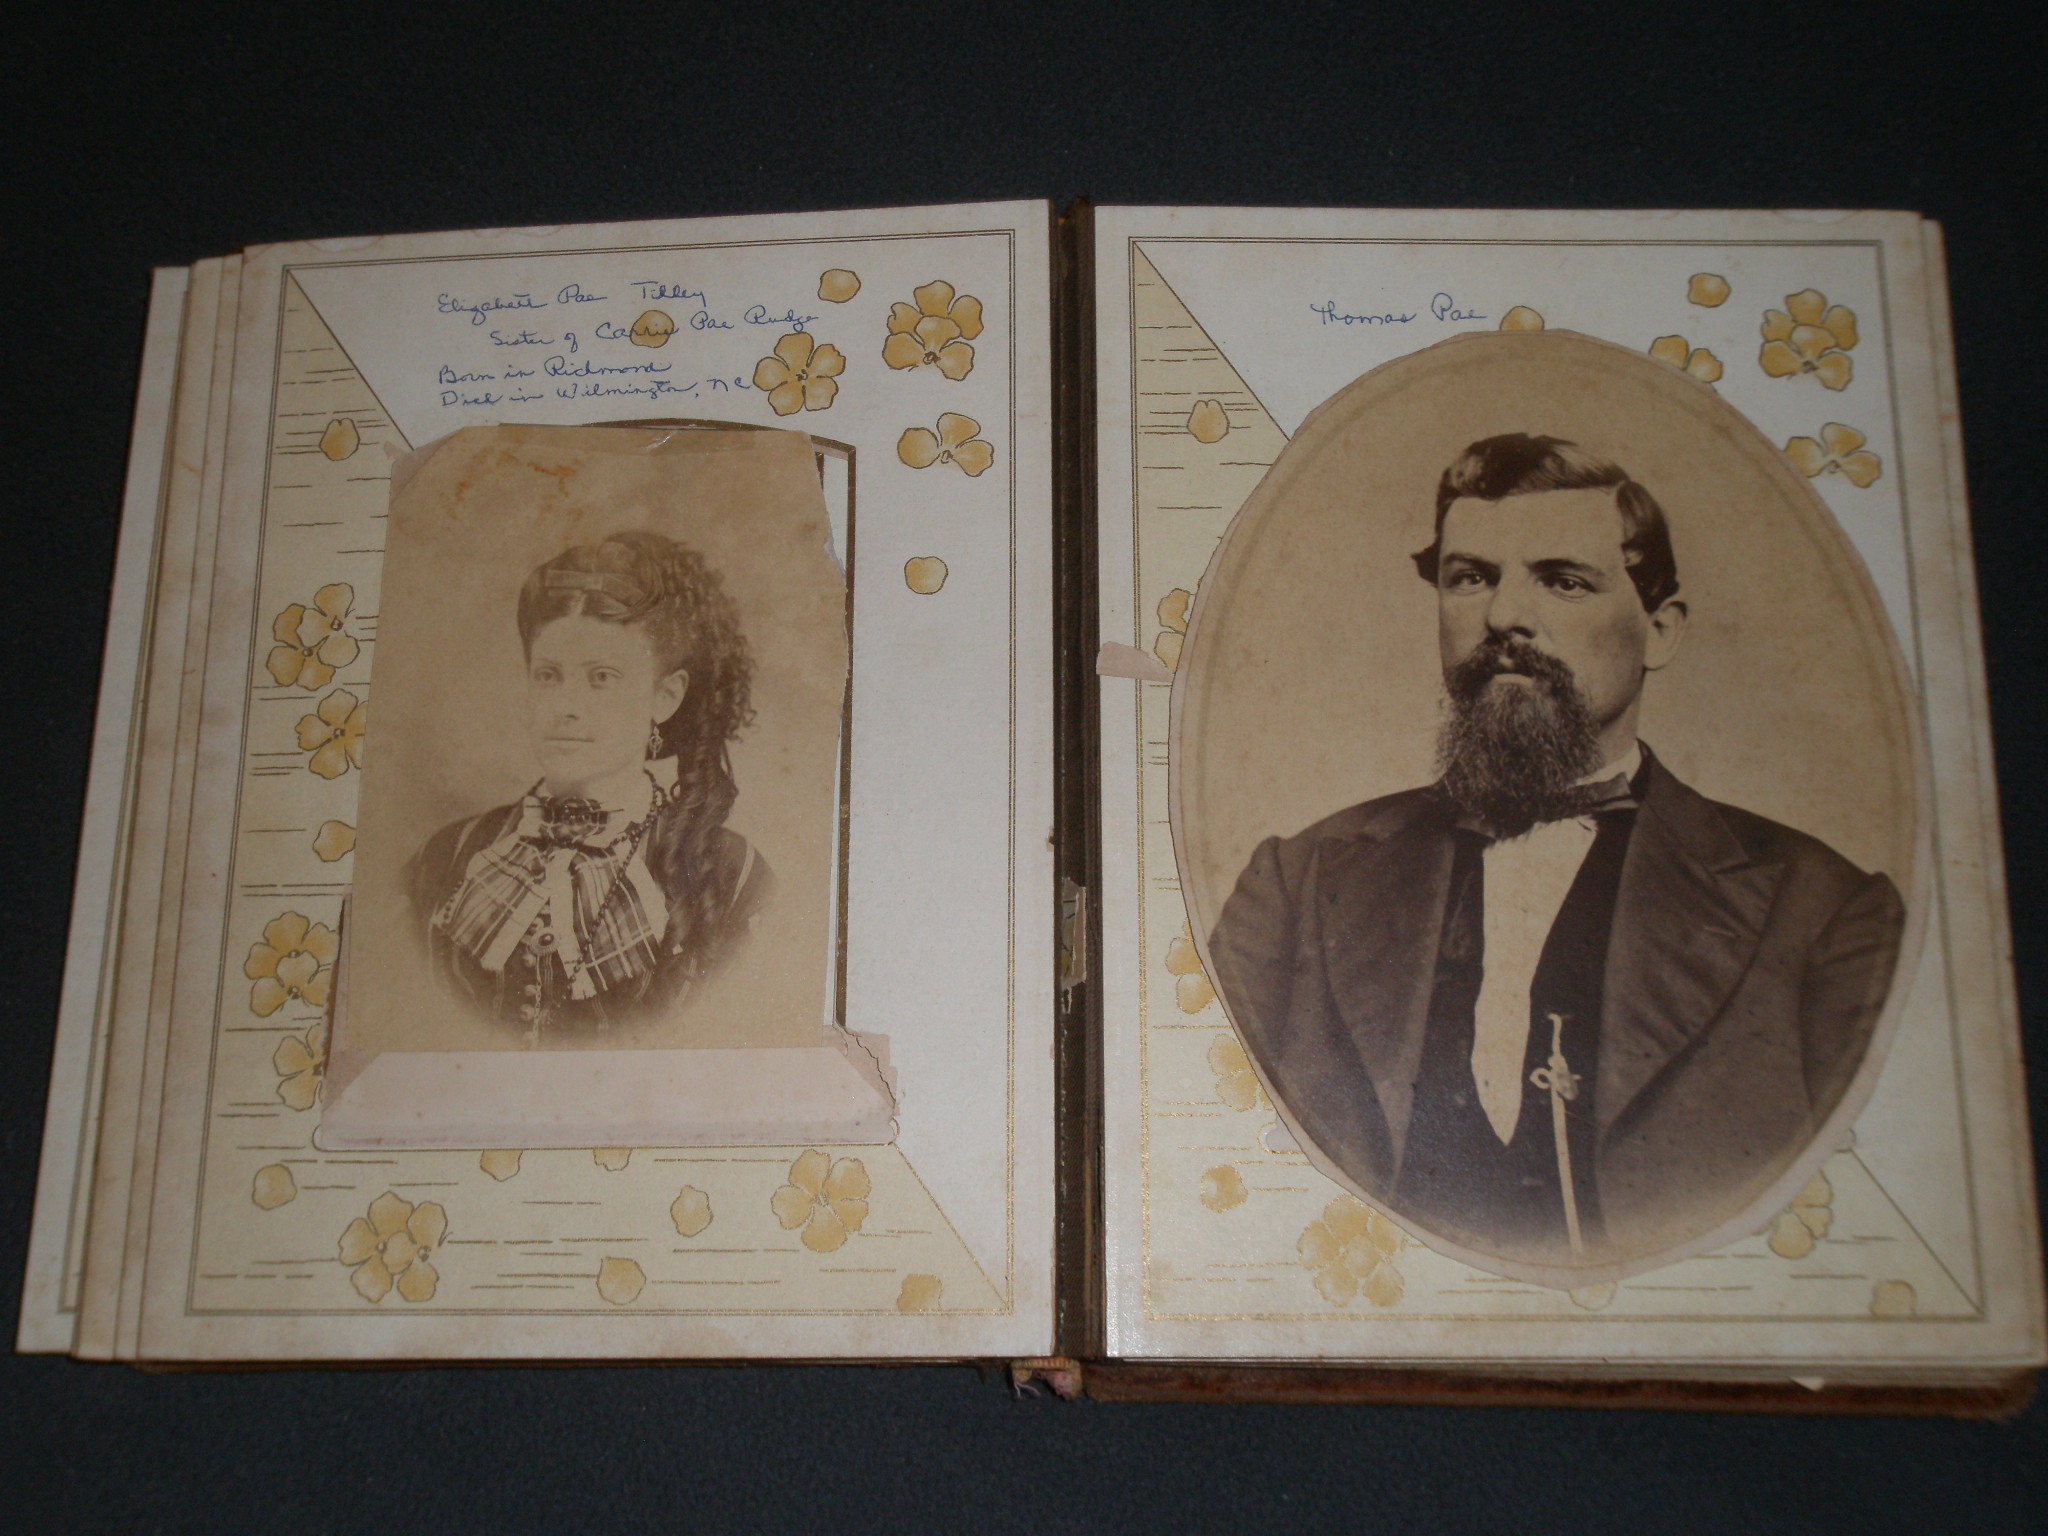 Elizabeth Pae Tilley
Sister of Carrie Pae Rudge
Born in Richmond
Died in Wilmington, NC
Thomas Pae